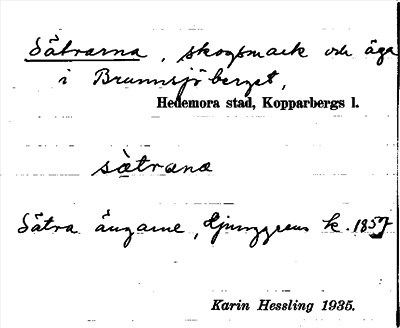 Sätrarna, skogsmark och äga
i Brunnsjöberget,
Hedemora stad, Kopparbergs l.
sætrana
Sätra ängarne, Ljunggrens k. 1857
Karin Hessling 1935.